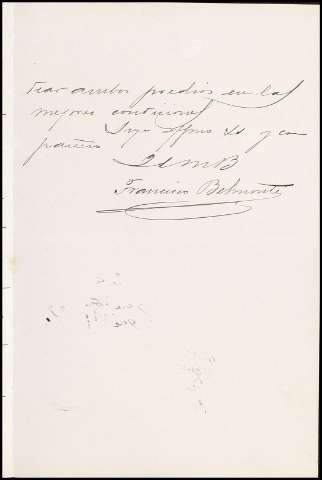 trar ambos predios en las
mejores condiciones
Suyo affmo SS y com
pañero
Q B S M
Francisco Belmonte